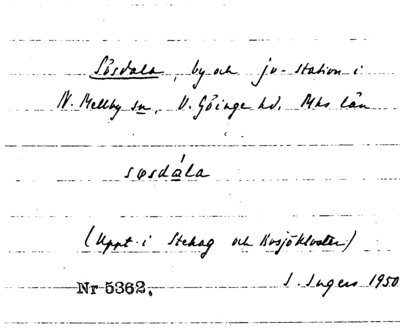 Sösdala, by och jv-station i
N. Mellby sn, V. Göinge hd. Mhs län
søsdála
(Uppt. i Stehag och Bosjökloster)
Nr 5362. I. Ingers 1950